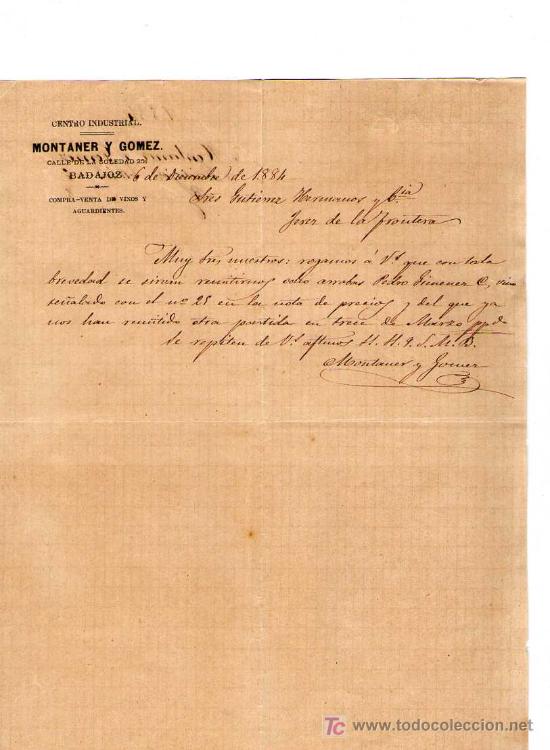 CENTRO INDUSTRIAL.
MONTANER Y GOMEZ.
CALLE DE LA SOLEDAD 25
BADAJOZ 6 de Diciembre de 1884
COMPRA-VENTA DE VINOS Y
AGUARDIENTES.
Sres Gutierrez Hermanos y Cia
Jerez de la Frontera
Muy Sres nuestros: rogamos á Vs que con toda
brevedad se sirvan remitirnos ocho arrobas Pedro Gimenez C, vino
señalado con el nº 25 en la nota de precios y del que ya
nos han remitido otra partida en trece de Marzo ppdo
Se repiten de Vs aftmos S. S. Q. S. M. B.
Montaner y Gomez
TC www.todocoleccion.net